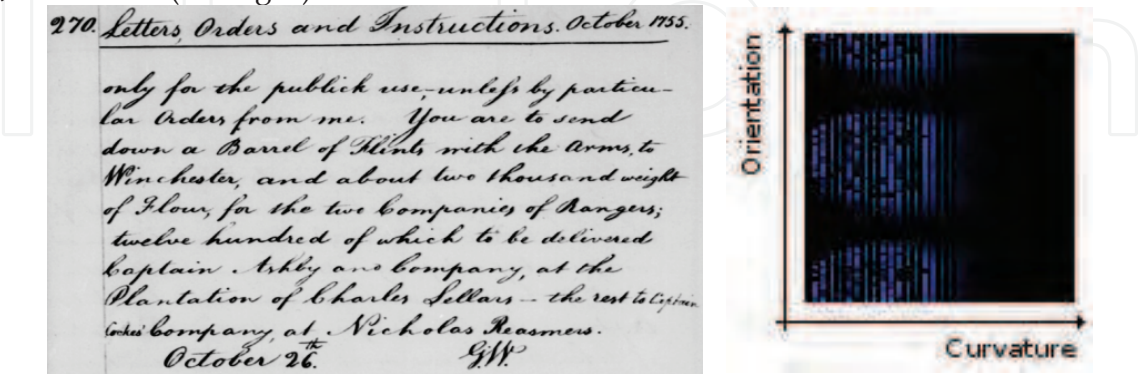 270. Letters, Orders and Instructions. October 1755.
only for the publick use, unless by particu-
lar Orders from me. You are to send
down a Barrel of Flints with the Arms, to
Winchester, and about two thousand weight
of Flour, for the two Companies of Rangers;
twelve hundred of which to be delivered
Captain Ashby and Company, at the
Plantation of Charles Sellars - the rest to Captain
Cockes' Company, at Nicholas Reasmers.
October 26.th G.W.
Orientation
Curvature